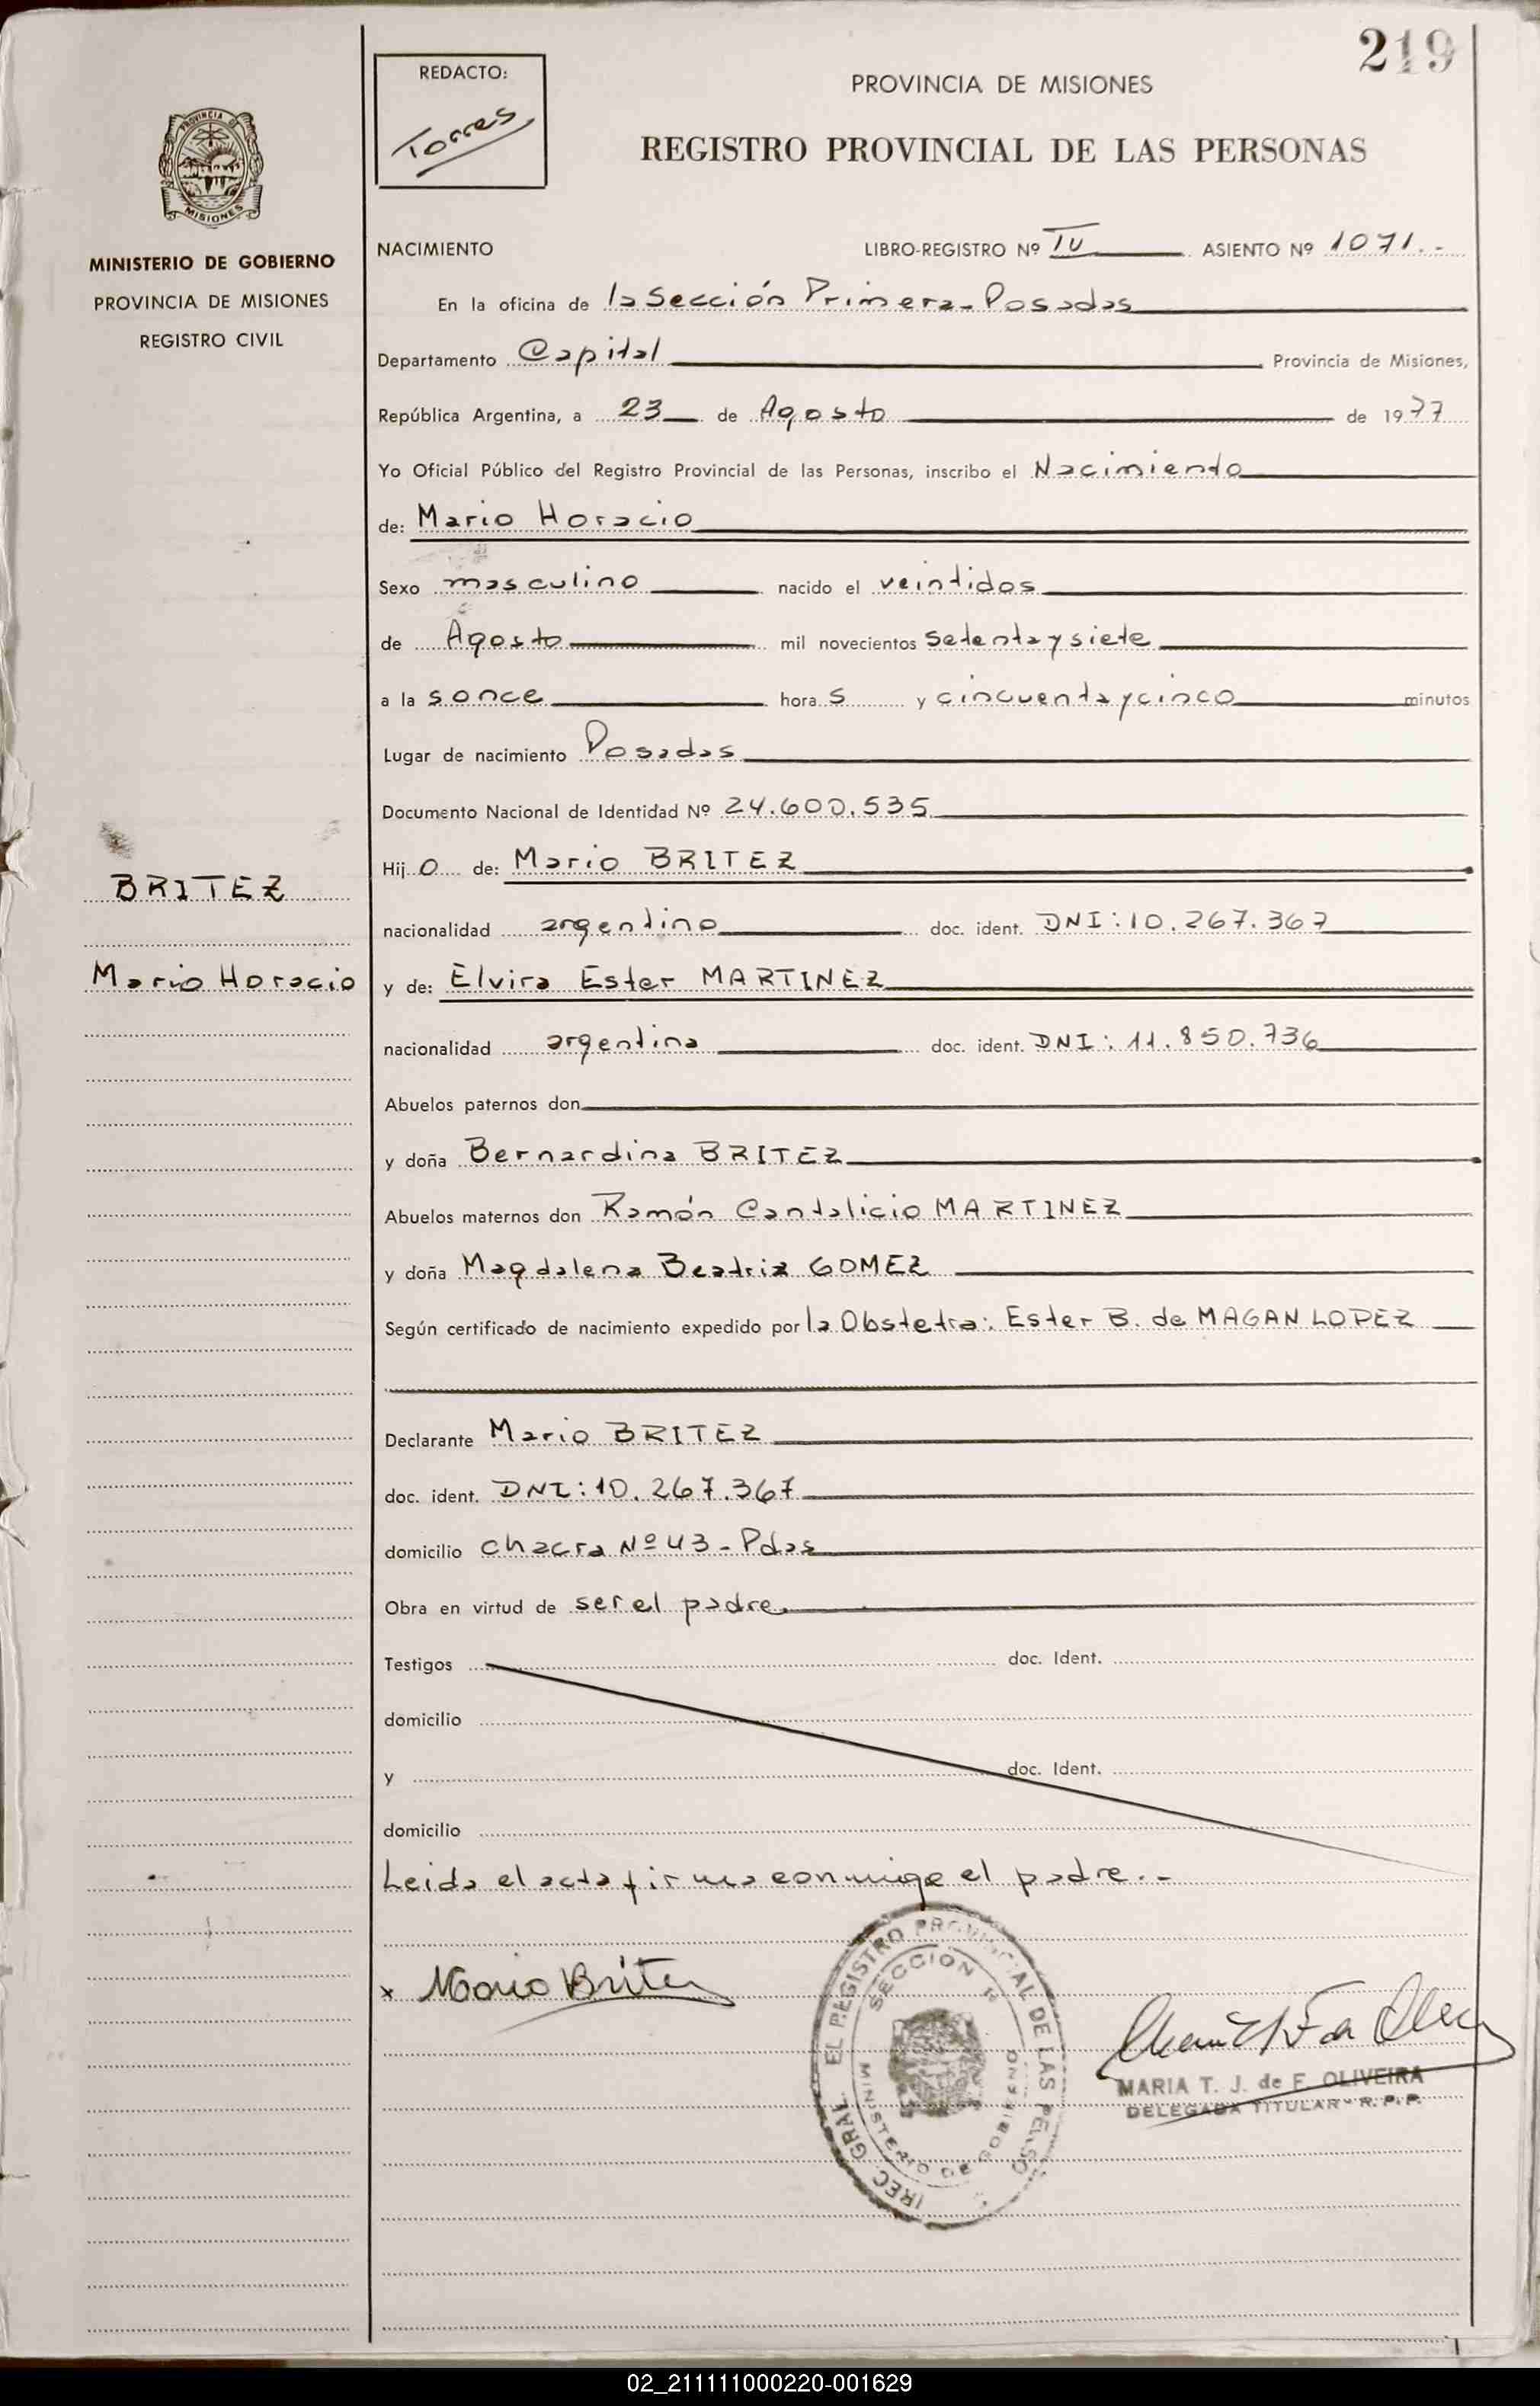 219
REDACTO:
Torres
PROVINCIA DE MISIONES
REGISTRO PROVINCIAL DE LAS PERSONAS
PROVINCIA
MISIONES
MINISTERIO DE GOBIERNO
PROVINCIA DE MISIONES
REGISTRO CIVIL
NACIMIENTO LIBRO-REGISTRO Nº IV ASIENTO Nº 1071.-
En la oficina de la Sección Primera-Posadas
Departamento Capital Provincia de Misiones,
República Argentina, a 23 de Agosto de 1977
Yo Oficial Público del Registro Provincial de las Personas, inscribo el Nacimiento
de: Mario Horacio
Sexo masculino nacido el veintidos
de Agosto mil novecientos setenta y siete
a la s once hora s y cincuenta y cinco minutos
Lugar de nacimiento Posadas
Documento Nacional de Identidad Nº 24.600.535
Hij o de: Mario BRITEZ
BRITEZ
nacionalidad argentino doc. ident. DNI: 10.267.367
Mario Horacio
y de: Elvira Ester MARTINEZ
nacionalidad argentina doc. ident. DNI: 11.850.736
Abuelos paternos don
y doña Bernardina BRITEZ
Abuelos maternos don Ramón Cantalicio MARTINEZ
y doña Magdalena Beatriz GOMEZ
Según certificado de nacimiento expedido por la Obstetra: Ester B. de MAGAN LOPEZ
Declarante Mario BRITEZ
doc. ident. DNI: 10.267.367
domicilio chacra Nº 43 - Pdas
Obra en virtud de ser el padre
Testigos doc. Ident.
domicilio
y doc. Ident.
domicilio
Leida el acta firma conmigo el padre.-
x Mario Britez
IREC. GRAL. EL REGISTRO PROVINCIAL DE LAS PERSO
SECCION 1ª
MINISTERIO DE GOBIERNO
MARIA T. J. de F. OLIVEIRA
DELEGADA TITULAR - R.P.P.
02_211111000220-001629